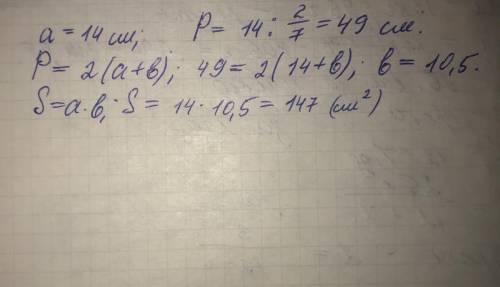 a = 14 см; P = 14 : 2/7 = 49 см.
P = 2(a+в); 49 = 2(14+в); в = 10,5.
S = a·в; S = 14·10,5 = 147 (см²)